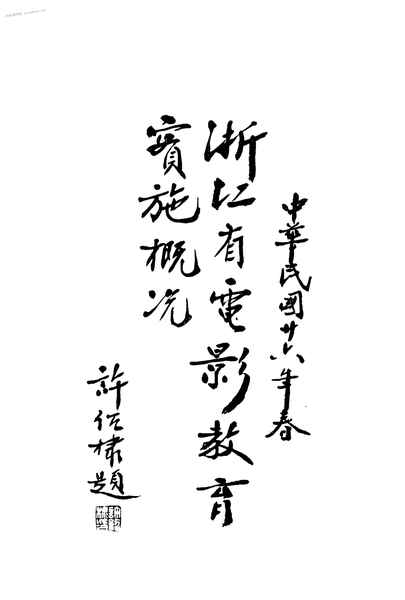 中華民國廿六年春
浙江省電影教育
實施概况
許紹棣題